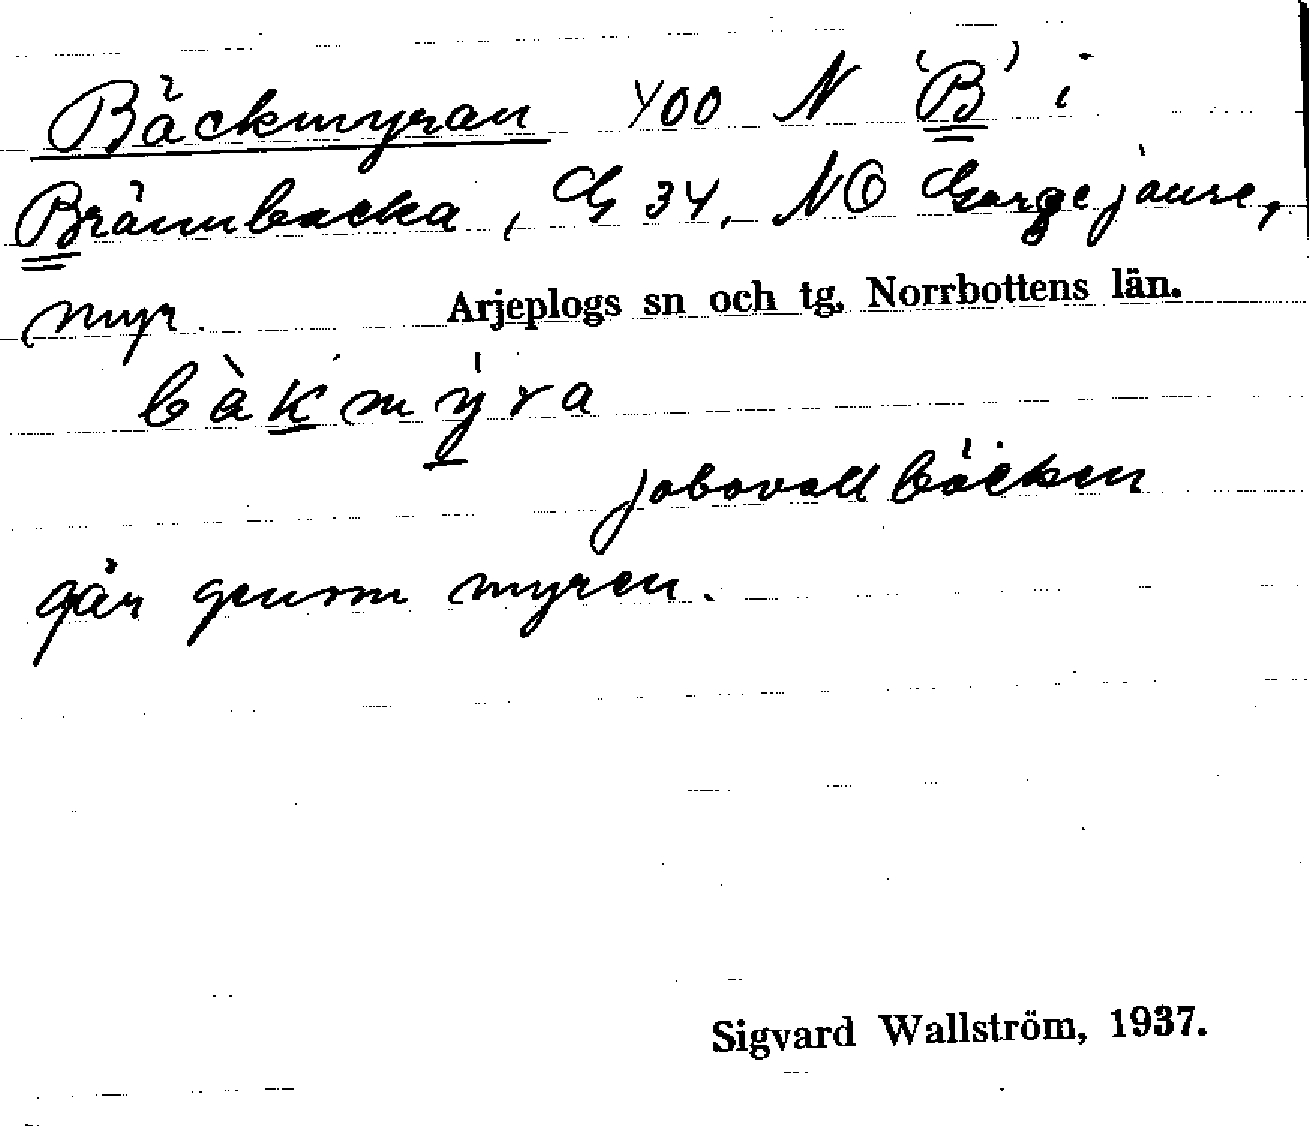 Bäckmyran 400 N 'B' i
Brännbacka, G 34, NO Gargejaure,
myr. Arjeplogs sn och tg, Norrbottens län.
bàkmýra
Jabovallbäcken
går genom myren.
Sigvard Wallström, 1937.